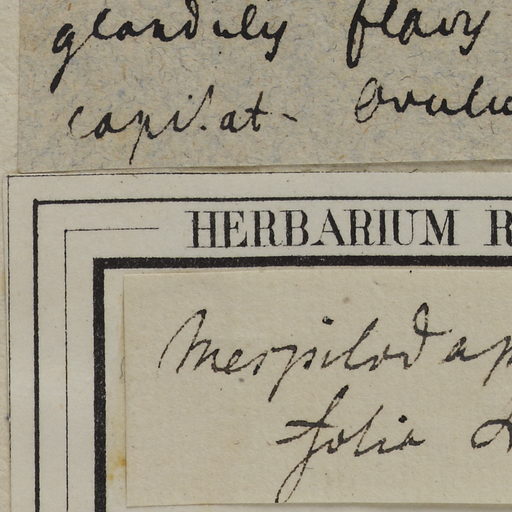 glanduly flavy
capitat- Ovulu
HERBARIUM R
Mespilodap
folia